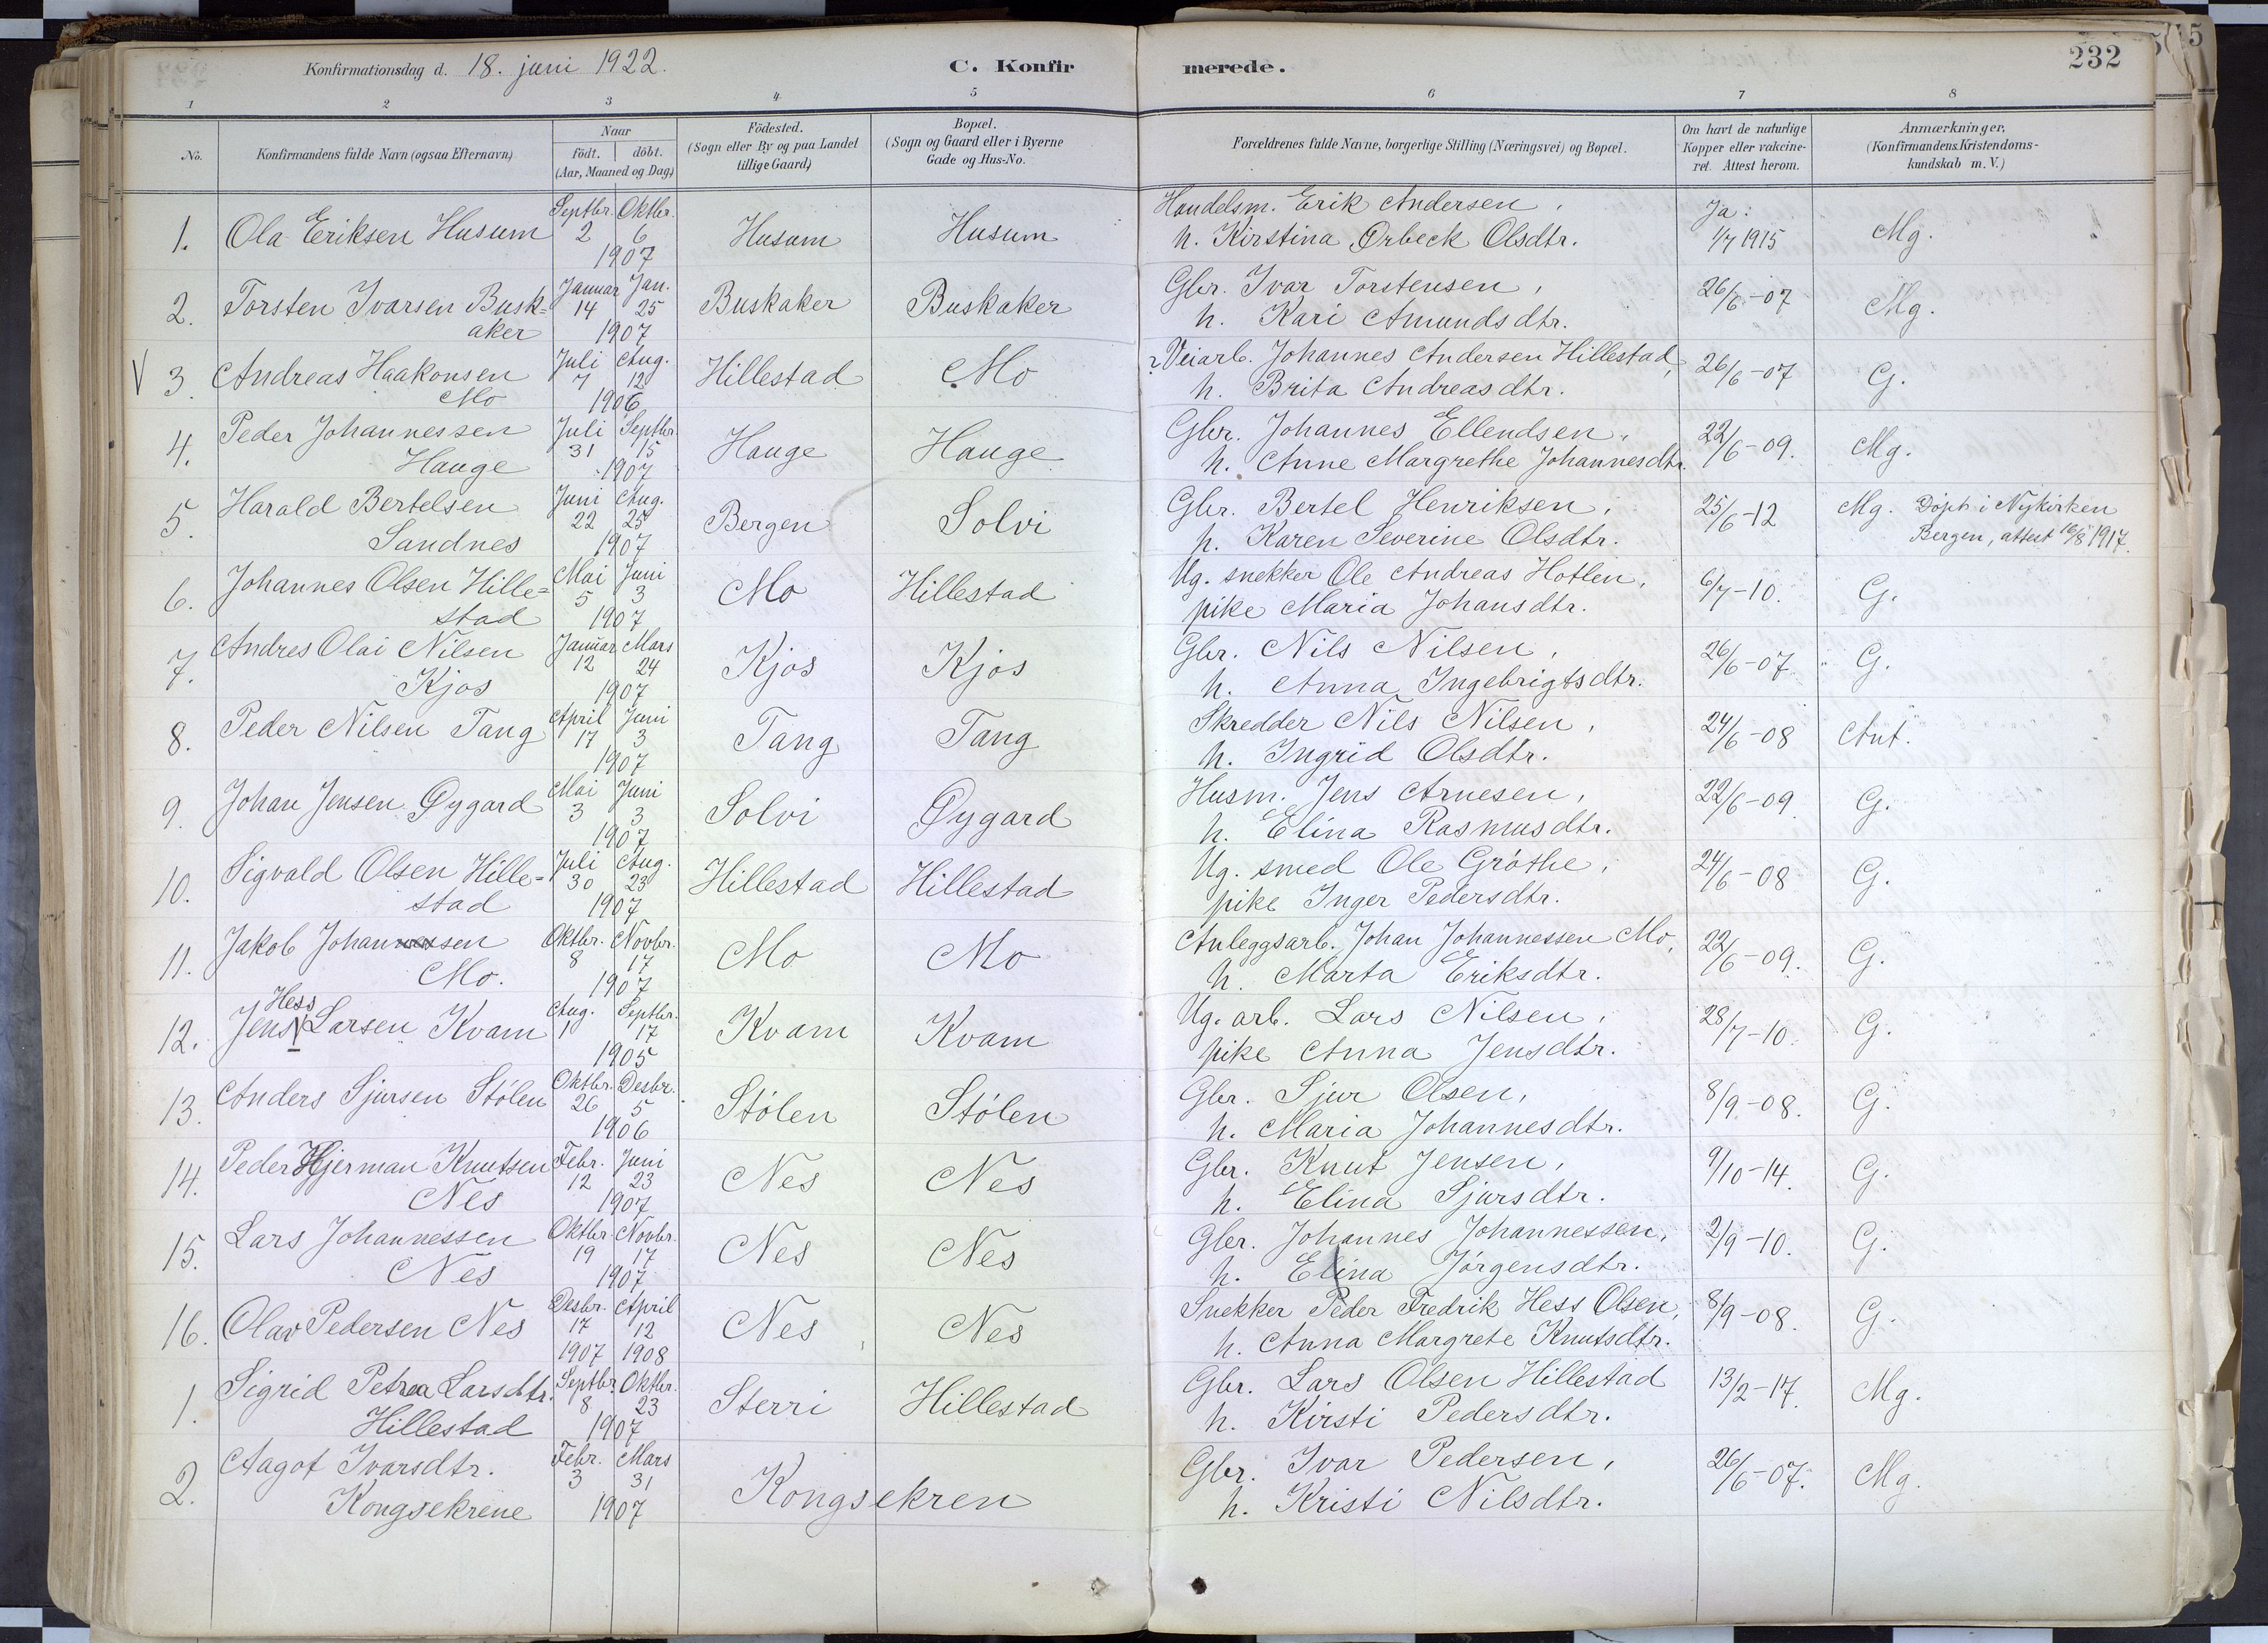 Konfirmationsdag d. 18. juni 1922.
C. Konfirmerede.
232
1 2 3 4 5 6 7 8
No.
Konfirmandens fulde Navn (ogsaa Efternavn)
Naar
födt. döbt.
(Aar, Maaned og Dag)
Födested.
(Sogn eller By og paa Landet
tillige Gaard)
Bopæl.
(Sogn og Gaard eller i Byerne
Gade og Hus-No.
Forældrenes fulde Navne, borgerlige Stilling (Næringsvei) og Bopæl.
Om havt de naturlige
Kopper eller vakcine-
ret. Attest herom.
Anmærkninger,
(Konfirmandens Kristendoms-
kundskab m. V.)
Septbr. Oktbr. Handelsm. Erik Andersen, Ja:
1. Ola Eriksen Husum 2 6 Husum Husum h. Kirstina Ørbeck Olsdtr. 1/7 1915 Mg.
1907
Januar Jan. Gbr. Ivar Torstensen,
2. Torsten Ivarsen Busk- 14 25 Buskaker Buskaker h. Kari Amundsdtr. 26/6-07 Mg.
aker 1907
V 3. Andreas Haakonsen Juli Aug. Hillestad Mo Veiarb. Johannes Andersen Hillestad, 26/6-07 G.
Mo 7 12 h. Brita Andreasdtr.
1906
4. Peder Johannessen Juli Septbr. Hauge Hauge Gbr. Johannes Ellendsen, 22/6-09. Mg.
Hauge 31 15 h. Anne Margrethe Johannesdtr.
1907
5. Harald Bertelsen Juni Aug. Bergen Solvi Gbr. Bertel Henriksen, 25/6-12 Mg. Döpt i Nykirken
Sandnes 22 25 h. Karen Severine Olsdtr. Bergen, attest 16/8 1917.
1907
6. Johannes Olsen Hille- Mai Juni Mo Hillestad Ug. snekker Ole Andreas Hotlen, 6/7-10. G.
stad 5 3 pike Maria Johansdtr.
1907
7. Andres Olai Nilsen Januar Mars Kjos Kjos Gbr. Nils Nilsen, 26/6-07. G.
Kjos 12 24 h. Anna Ingebrigtsdtr.
1907
8. Peder Nilsen Tang April Juni Tang Tang Skredder Nils Nilsen, 24/6-08 Ant.
17 3 h. Ingrid Olsdtr.
1907
9. Johan Jensen Øygard Mai Juni Solvi Øygard Husm. Jens Arnesen, 22/6-09 G.
3 3 h. Elina Rasmusdtr.
1907
10. Sigvald Olsen Hille- Juli Aug. Hillestad Hillestad Ug. smed Ole Gröthe, 24/6-08 G.
stad 30 23 pike Inger Pedersdtr.
1907
11. Jakob Johannessen Oktbr. Novbr. Mo Mo Anleggsarb. Johan Johannessen Mo, 22/6-09. G.
Mo. 8 17 h. Marta Eriksdtr.
1907
Hess
12. Jens Larsen Kvam Aug. Septbr. Kvam Kvam Ug. arb. Lars Nilsen, 28/7-10. G.
1 17 pike Anna Jensdtr.
1905
13. Anders Sjursen Stölen Oktbr. Desbr. Stölen Stölen Gbr. Sjur Olsen, 8/9-08. G.
26 5 h. Maria Johannesdtr.
1906
14. Peder Hjerman Knutsen Febr. Juni Nes Nes Gbr. Knut Jensen, 9/10-14. G.
Nes 12 23 h. Elina Sjursdtr.
1907
15. Lars Johannessen Oktbr. Novbr. Nes Nes Gbr. Johannes Johannessen, 2/9-10. G.
Nes 19 17 h. Elina Jörgensdtr.
1907
16. Olav Pedersen Nes Desbr. April Nes Nes Snekker Peder Fredrik Hess Olsen, 8/9-08. G.
17 12 h. Anna Margrete Knutsdtr.
1907 1908
1. Sigrid Petrea Larsdtr. Septbr. Oktbr. Sterri Hillestad Gbr. Lars Olsen Hillestad 13/2-17. Mg.
Hillestad 8 23 h. Kirsti Pedersdtr.
1907
2. Aagot Ivarsdtr. Febr. Mars Kongsekren Gbr. Ivar Pedersen, 26/6-07. Mg.
Kongsekrene 3 31 h. Kristi Nilsdtr.
1907